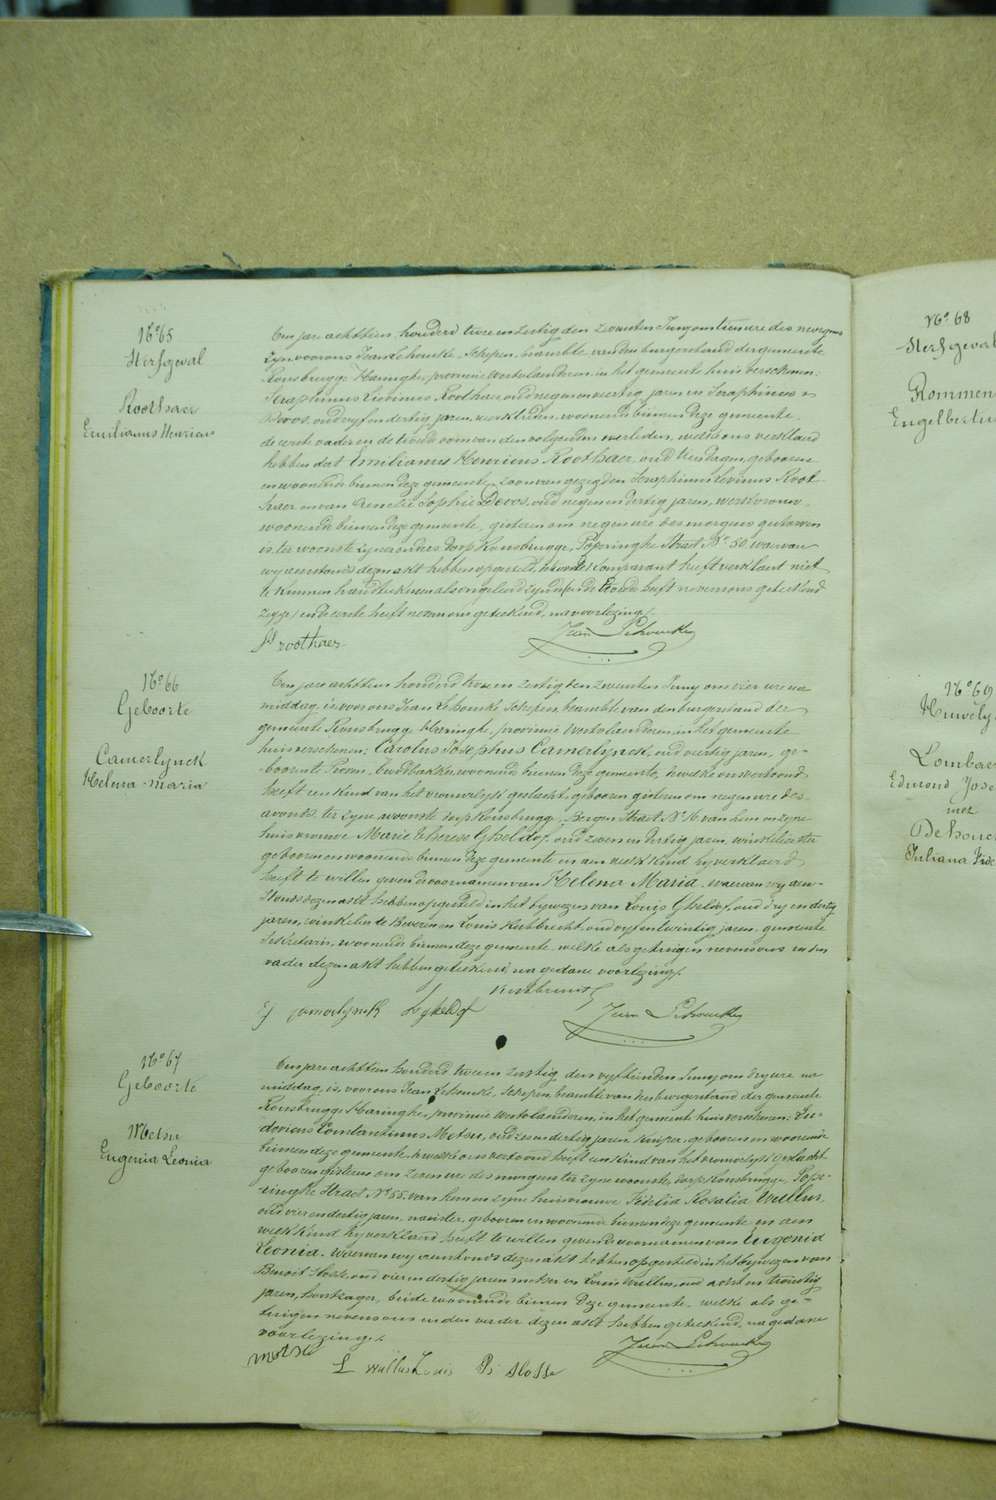 N° 65
Sterfgeval
Roothaer
Emilianus Henricus
Ten jare achttien honderd twee en zestig den zevensten Juny om tien ure des morgens
zijn voor ons Jean Schoucke, Schepen, beambte van den burgerstand der gemeente
Rousbrugge Haringhe, provincie Westvlaanderen, in het gemeente huis verschenen:
Seraphinus Livinus Roothaer oud negen en veertig jaren en Seraphinus
Devos, oud vyf en dertig jaren, werklieden, woonende binnen deze gemeente,
de eerste vader en de tweede oom van den volgenden overleden, welke ons verklaard
hebben dat Emilianus Henricus Roothaer, oud dagen, geboren
en woonende binnen deze gemeente, zoon van gezegden Seraphinus Livinus Root-
haer en van Sophie Devos, oud negen en dertig jaren, werkvrouw,
woonende binnen deze gemeente, gisteren om negen ure des morgens overleden
is ter woonste zyner ouders dorp Rousbrugge, Poperinghe Straet N° 50, waervan
wy aenstonds dezen akt hebben opgesteld, tweede Comparant heeft verklaert niet
te kunnen handteekenen als ongeleerd zynde
en de eerste heeft neven ons geteekend, na voorlezing.
S L roothaer Jean Schoucke
N° 66
Geboorte
Camerlynck
Helena-maria
Ten jare achttien honderd twee en zestig den zevensten Juny om vier ure na
middag, is voor ons Jean Schoucke Schepen beambte van den burgerstand der
gemeente Rousbrugge Haringhe, provincie Westvlaanderen, in het gemeente
huis verschenen: Carolus Josephus Camerlynck, oud veertig jaren, ge-
boren te Proven, broodbakker, woonende binnen deze gemeente, dewelke ons vertoond
heeft een kind van het vrouwelyk geslacht, geboren gisteren om negen ure des
avonds, ter zyne woonste dorp Rousbrugge, Bergen Straet N° 16, van hem en zyne
huisvrouwe Marie Therese Gheldof, oud zeven en dertig jaren, winkelierster
geboren en woonende binnen deze gemeente en aen welk kind hy verklaerd
heeft te willen geven de voornamen van Helena Maria, waervan wy aen-
stonds dezen akt hebben opgesteld in het bywezen van Louis Gheldof, oud dry en dertig
jaren, winkelier te Beveren en Louis Kerbrecht, oud vyf en twintig jaren, gemeente
Sekretaris, woonende binnen deze gemeente, welke als getuigen nevens ons en den
vader dezen akt hebben geteekend, na gedane voorlezing.
C J Camerlynck L Gheldof Jean Schoucke
N° 67
Geboorte
Metsu
Eugenia Leonia
Ten jare achttien honderd twee en zestig den vyftienden Juny om dry ure na
middag, is voor ons Jean Schoucke, Schepen, beambte van den burgerstand der gemeente
Rousbrugge Haringhe, provincie Westvlaanderen, in het gemeente huis verschenen: Lu-
dovicus Constantinus Metsu, oud zes en dertig jaren, kuiper, geboren en woonende
binnen deze gemeente, dewelke ons vertoond heeft een kind van het vrouwelyk geslacht
geboren gisteren om zeven ure des morgens ter zyne woonste, dorp Rousbrugge, Pope-
ringhe Straet, N° 55, van hem en zyne huisvrouwe Fidelia Rosalia Wullus,
oud vier en dertig jaren, naaister, geboren en woonende binnen deze gemeente en aen
welk kind hy verklaerd heeft te willen geven de voornamen van Eugenia
Leonia. Waervan wy aenstonds dezen akt hebben opgesteld in het bywezen van
Benoit Slosse, oud vier en dertig jaren metser en Louis Wullus, oud acht en twintig
jaren, houtzager, beide woonende binnen deze gemeente, welke als ge-
tuigen nevens ons en den vader dezen akt hebben geteekend, na gedane
voorlezinge.
Metsu L Wullus Louis B Slosse Jean Schoucke
N° 68
Sterfgeval
Rommen
Engelbertu
N° 69
Huwely
Lombae
Edmond Jose
met
Dehouc
Juliana